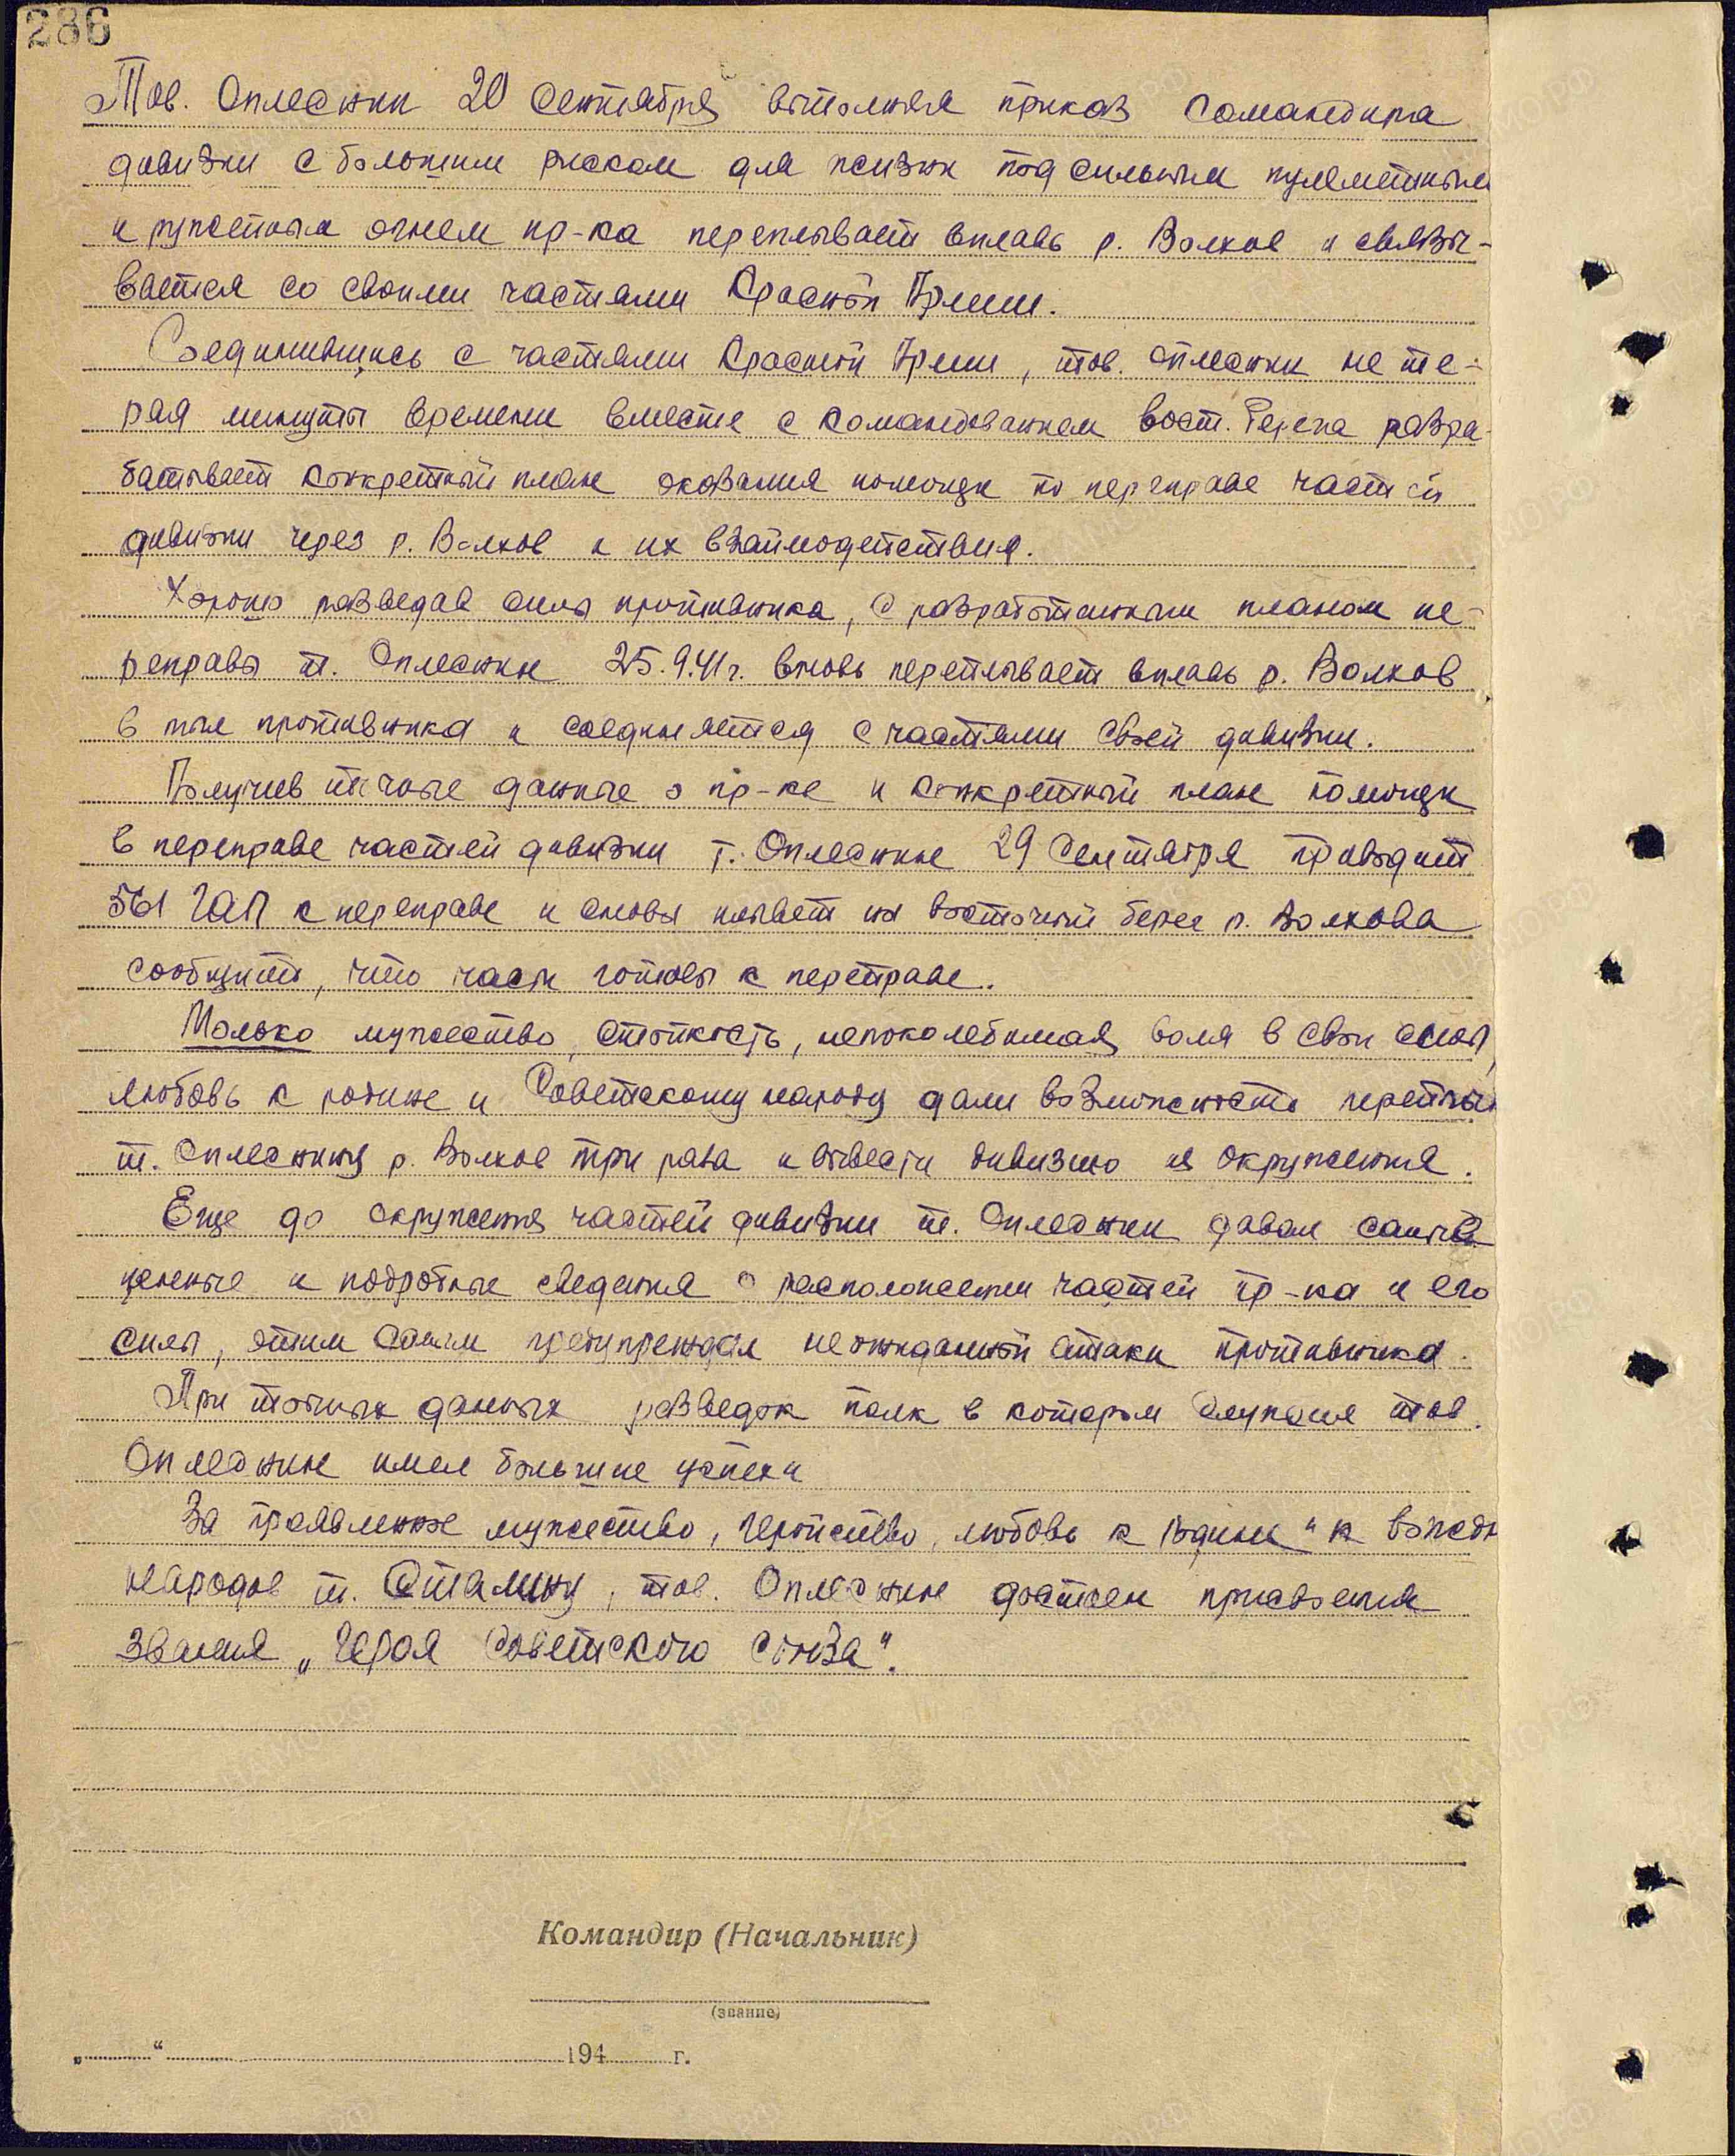 286
Тов. Оплеснин 20 Сентября выполняя приказ Командира
дивизии с большим риском для жизни под сильным пулеметным
и ружейным огнем пр-ка переплывает вплавь р. Волхов и связы-
вается со своими частями Красной Армии.
Соединившись с частями Красной Армии, тов. Оплеснин не те-
ряя минуты времени вместе с командованием вост. берега разра-
батывает конкретный план оказания помощи по переправе частей
дивизии через р. Волхов и их взаимодействия.
Хорошо разведав силы противника, с разработанным планом пе-
реправы т. Оплеснин 25.9.41 г. вновь переплывает вплавь р. Волхов
в тыл противника и соединяется с частями своей дивизии.
Получив точные данные о пр-ке и конкретный план помощи
в переправе частей дивизии т. Оплеснин 29 Сентября проводит
561 ГАП к переправе и снова плывет на восточный берег р. Волхова
сообщить, что части готовы к переправе.
Только мужество, стойкость, непоколебимая воля в свои силы,
любовь к родине и Советскому народу дали возможность переплыть
т. Оплеснину р. Волхов три раза и вывести дивизию из окружения.
Еще до окружения частей дивизии т. Оплеснин давал самые
ценные и подробные сведения о расположении частей пр-ка и его
силы, этим самым предупреждал неожиданной атаки противника.
При точных данных разведок полк в котором служил тов.
Оплеснин имел большие успехи
За проявленное мужество, геройство, любовь к родине и к вождю
народов т. Сталину, тов. Оплеснин достоен присвоения
звания „Героя Советского Союза".
Командир (Начальник)
(звание)
„ “ 194 г.